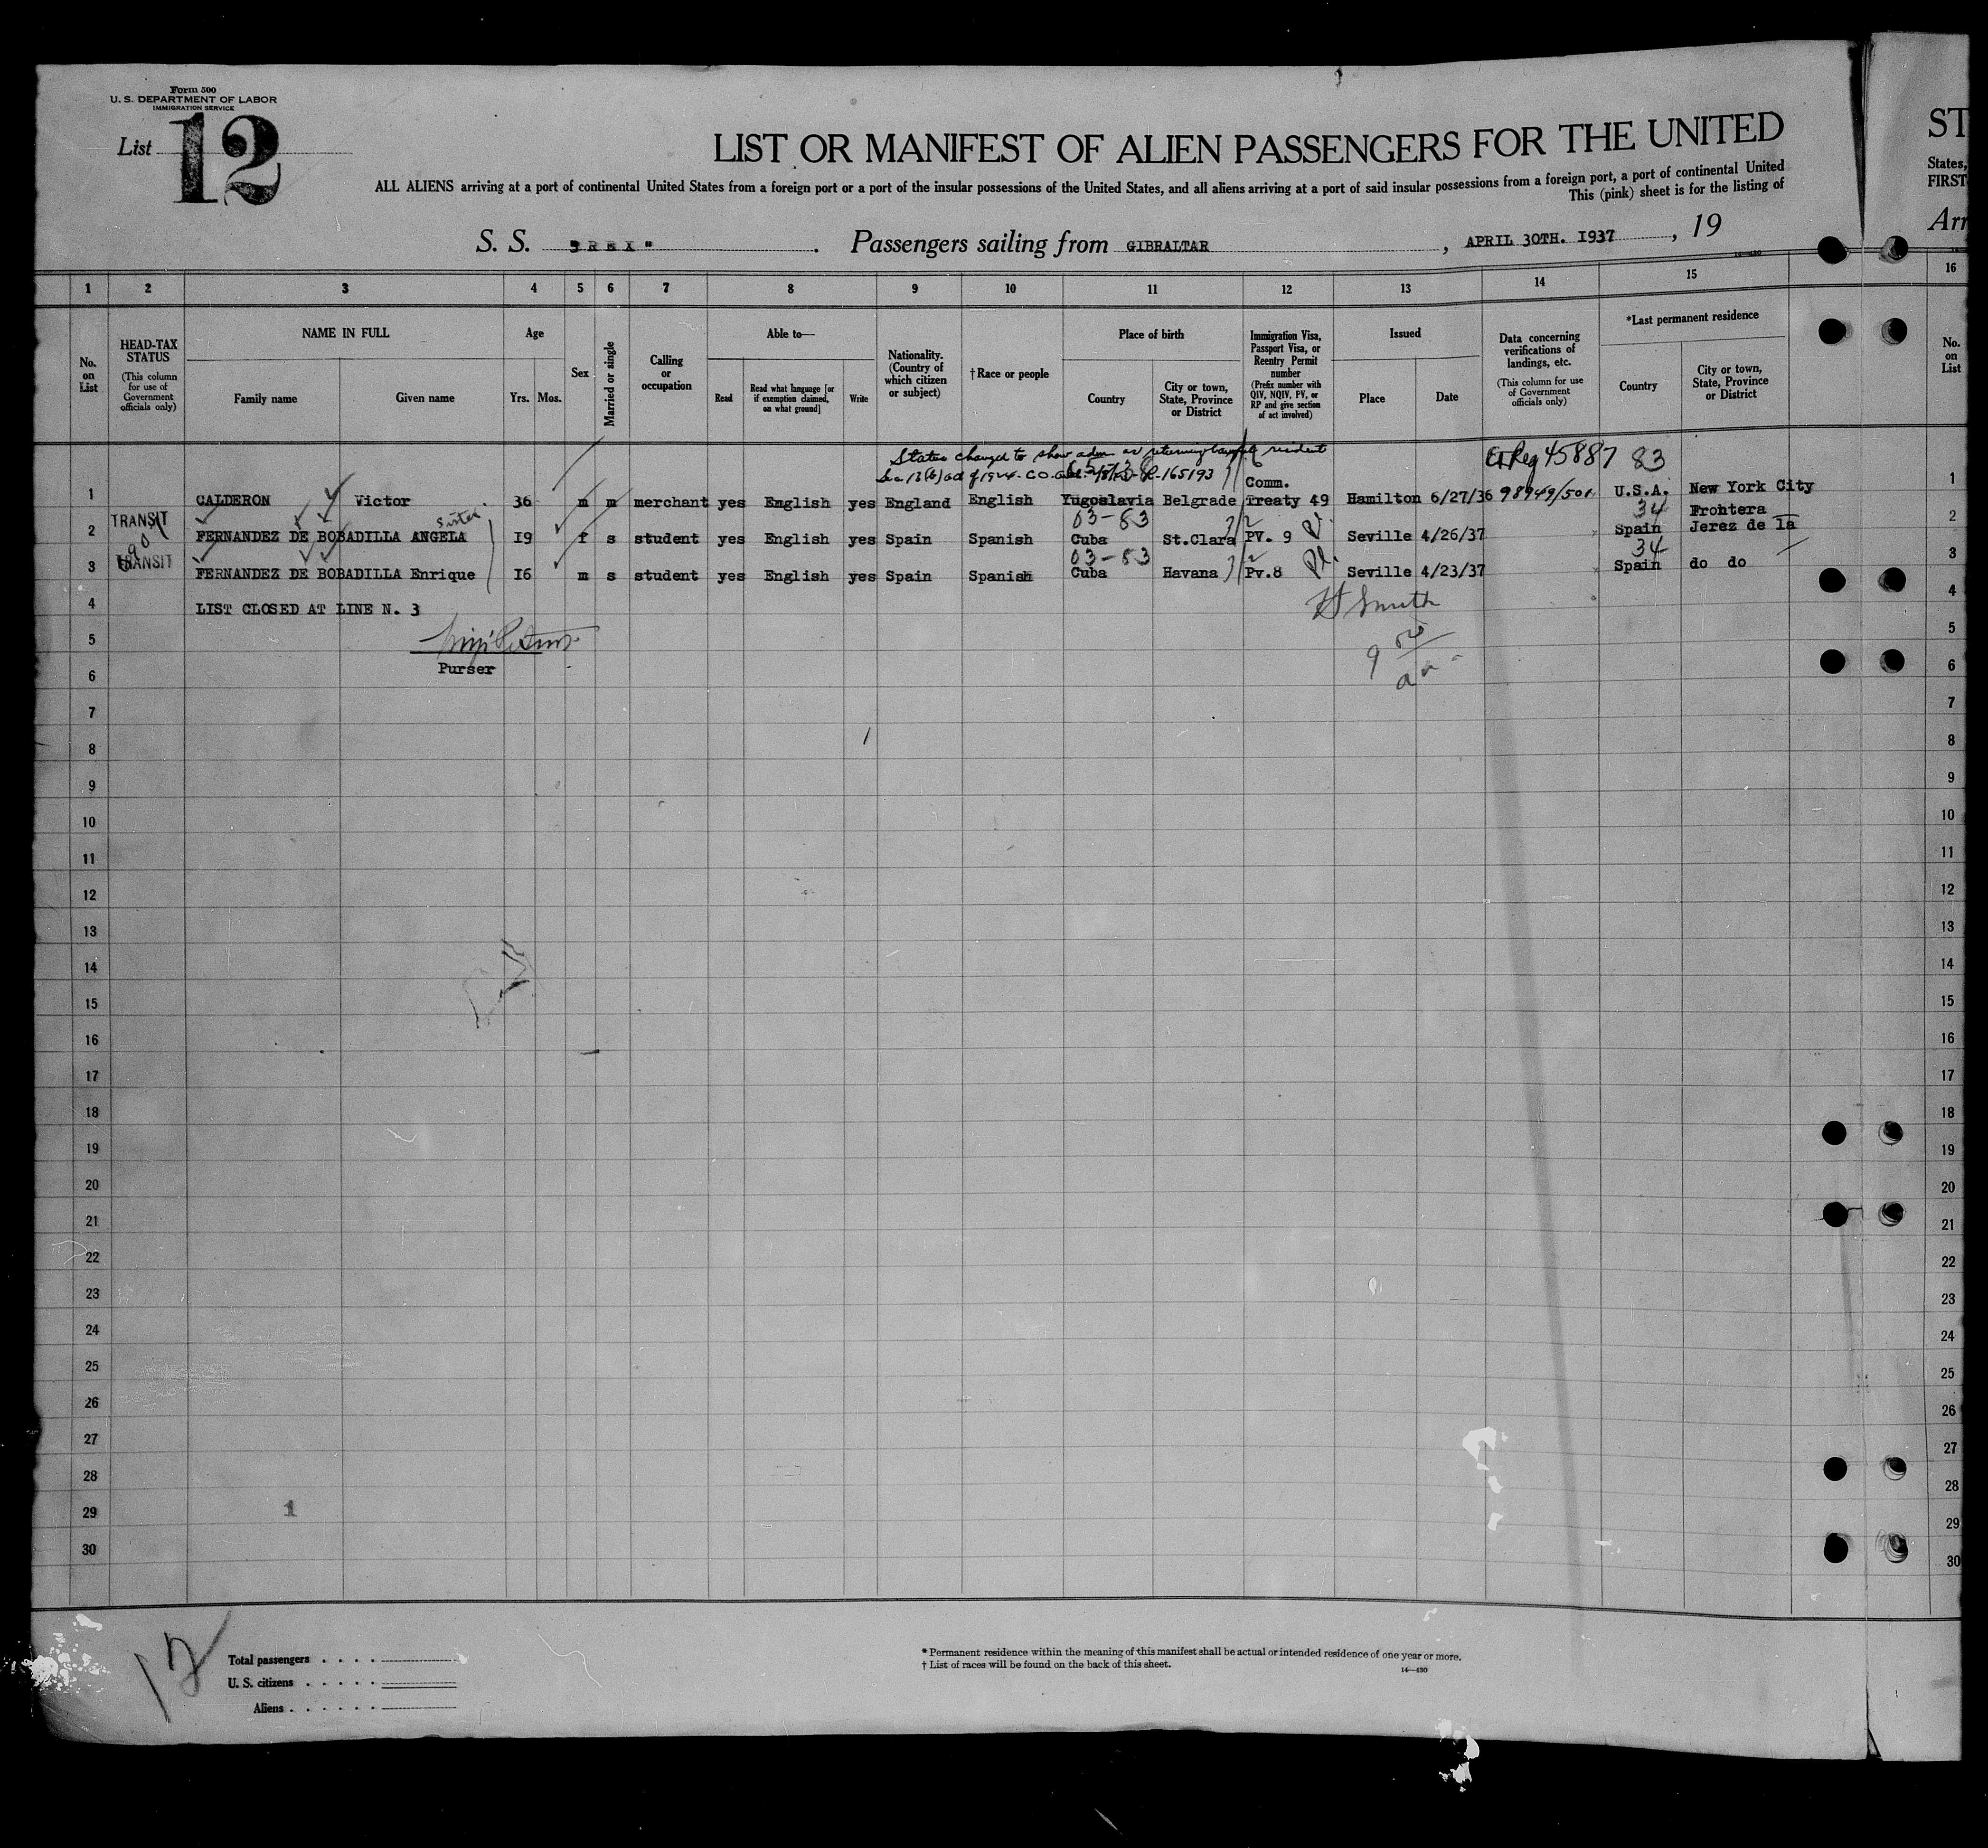 Form 500
U. S. DEPARTMENT OF LABOR
IMMIGRATION SERVICE
List 12
LIST OR MANIFEST OF ALIEN PASSENGERS FOR THE UNITED
ST
ALL ALIENS arriving at a port of continental United States from a foreign port or a port of the insular possessions of the United States, and all aliens arriving at a port of said insular possessions from a foreign port, a port of continental United
States,
This (pink) sheet is for the listing of
FIRST
S. S. "REX". Passengers sailing from GIBRALTAR, APRIL 30TH. I937, 19
Arr
14—430
1 2 3 4 5 6 7 8 9 10 11 12 13 14 15 16
No. on List
HEAD-TAX STATUS (This column for use of Government officials only)
NAME IN FULL
Family name Given name
Age
Yrs. Mos.
Sex
Married or single
Calling or occupation
Able to—
Read
Read what language [or if exemption claimed, on what ground]
Write
Nationality. (Country of which citizen or subject)
†Race or people
Place of birth
Country
City or town, State, Province or District
Immigration Visa, Passport Visa, or Reentry Permit number (Prefix number with QIV, NQIV, PV, or RP and give section of act involved)
Issued
Place Date
Data concerning verifications of landings, etc. (This column for use of Government officials only)
*Last permanent residence
Country
City or town, State, Province or District
No. on List
Status changed to show adm as returning lawful resident
Sec 13(b) act of 1924. C.O. 165193
Reg 45887 83
1 CALDERON Victor 36 m m merchant yes English yes England English Yugoslavia Belgrade Comm. Treaty 49 Hamilton 6/27/36 98949/501 U.S.A. New York City 1
sister
03-83
34
2 TRANSIT FERNANDEZ DE BOBADILLA ANGELA I9 f s student yes English yes Spain Spanish Cuba St.Clara PV. 9 Seville 4/26/37 Spain Frontera Jerez de la 2
03-83
34
3 TRANSIT FERNANDEZ DE BOBADILLA Enrique I6 m s student yes English yes Spain Spanish Cuba Havana Pv.8 Seville 4/23/37 Spain do do 3
4 LIST CLOSED AT LINE N. 3 Smith 4
5 5
6 Purser 6
7 7
8 8
9 9
10 10
11 11
12 12
13 13
14 14
15 15
16 16
17 17
18 18
19 19
20 20
21 21
22 22
23 23
24 24
25 25
26 26
27 27
28 28
29 1 29
30 30
12
Total passengers . . . .
U. S. citizens . . . . .
Aliens . . . . . .
* Permanent residence within the meaning of this manifest shall be actual or intended residence of one year or more.
† List of races will be found on the back of this sheet.
14—430